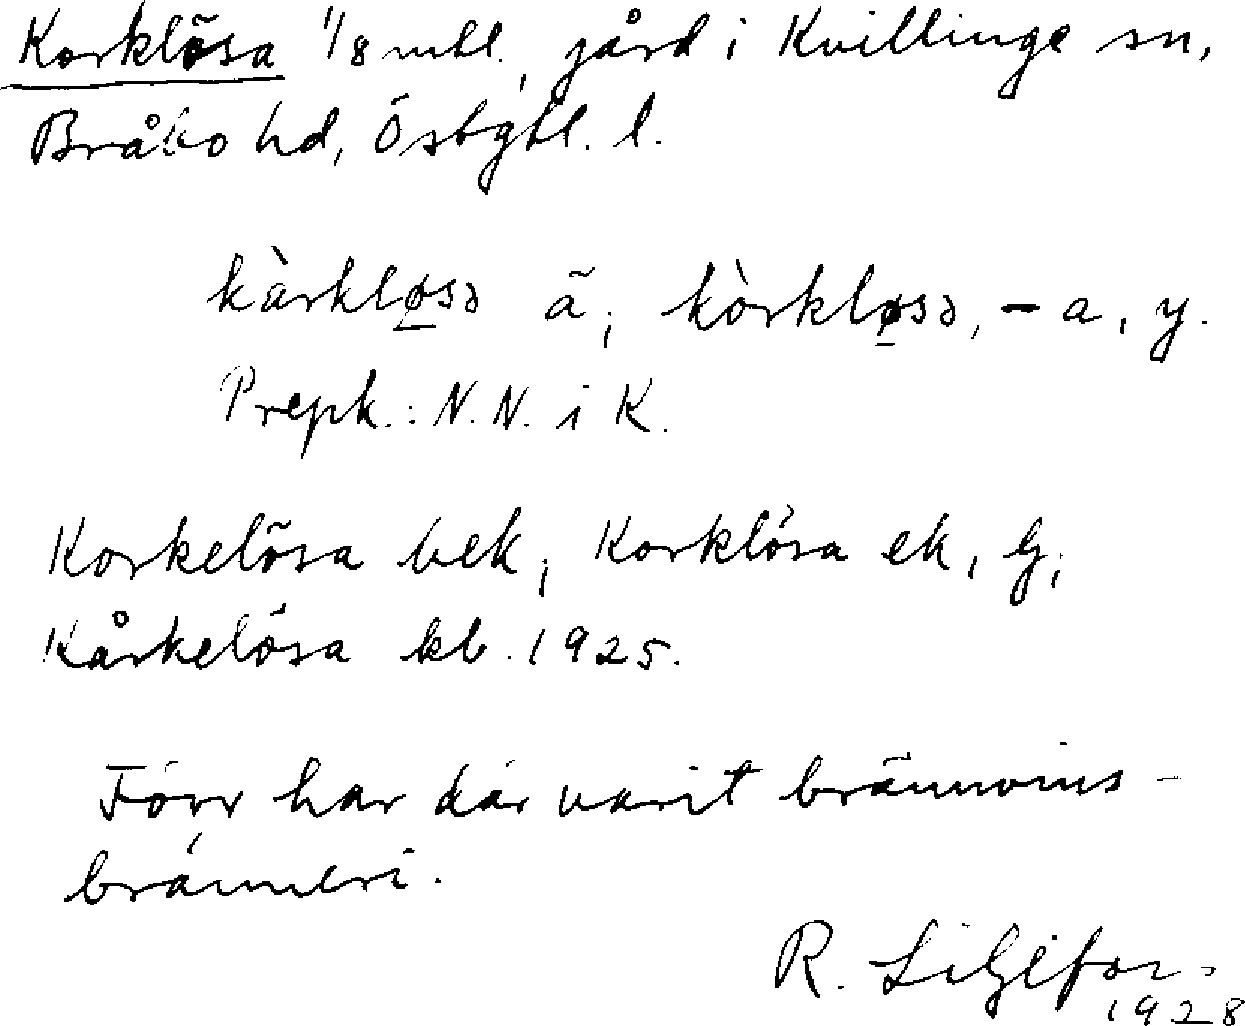 Korklösa 1/8 mtl., gård i Kvillinge sn,
Bråbo hd, Östgtl. l.
kàrkløsə ä; kòrkløsə, -a, y.
Prepk.: N.N. i K.
Korkelösa bek; Korklösa ek, G;
Kårkelösa kb. 1925.
Förr har där varit brännvins-
bränneri.
R. Liljefors
1928